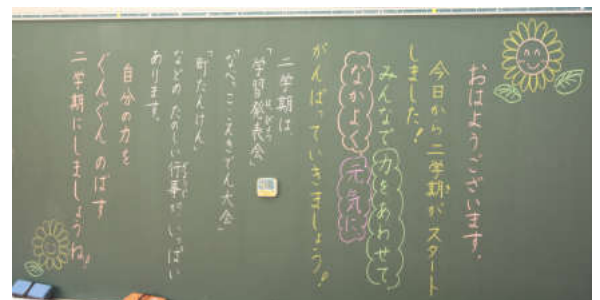 おはようございます。
今日から二学期がスタート
しました!
みんなで力をあわせて
なかよく元気に
がんばっていきましょう!
二学期は
「学習発表会」
「なべっこ えきでん大会」
「町たんけん」
などの たのしい行事が いっぱい
あります。
自分の力を
ぐんぐん のばす
二学期にしましょうね!